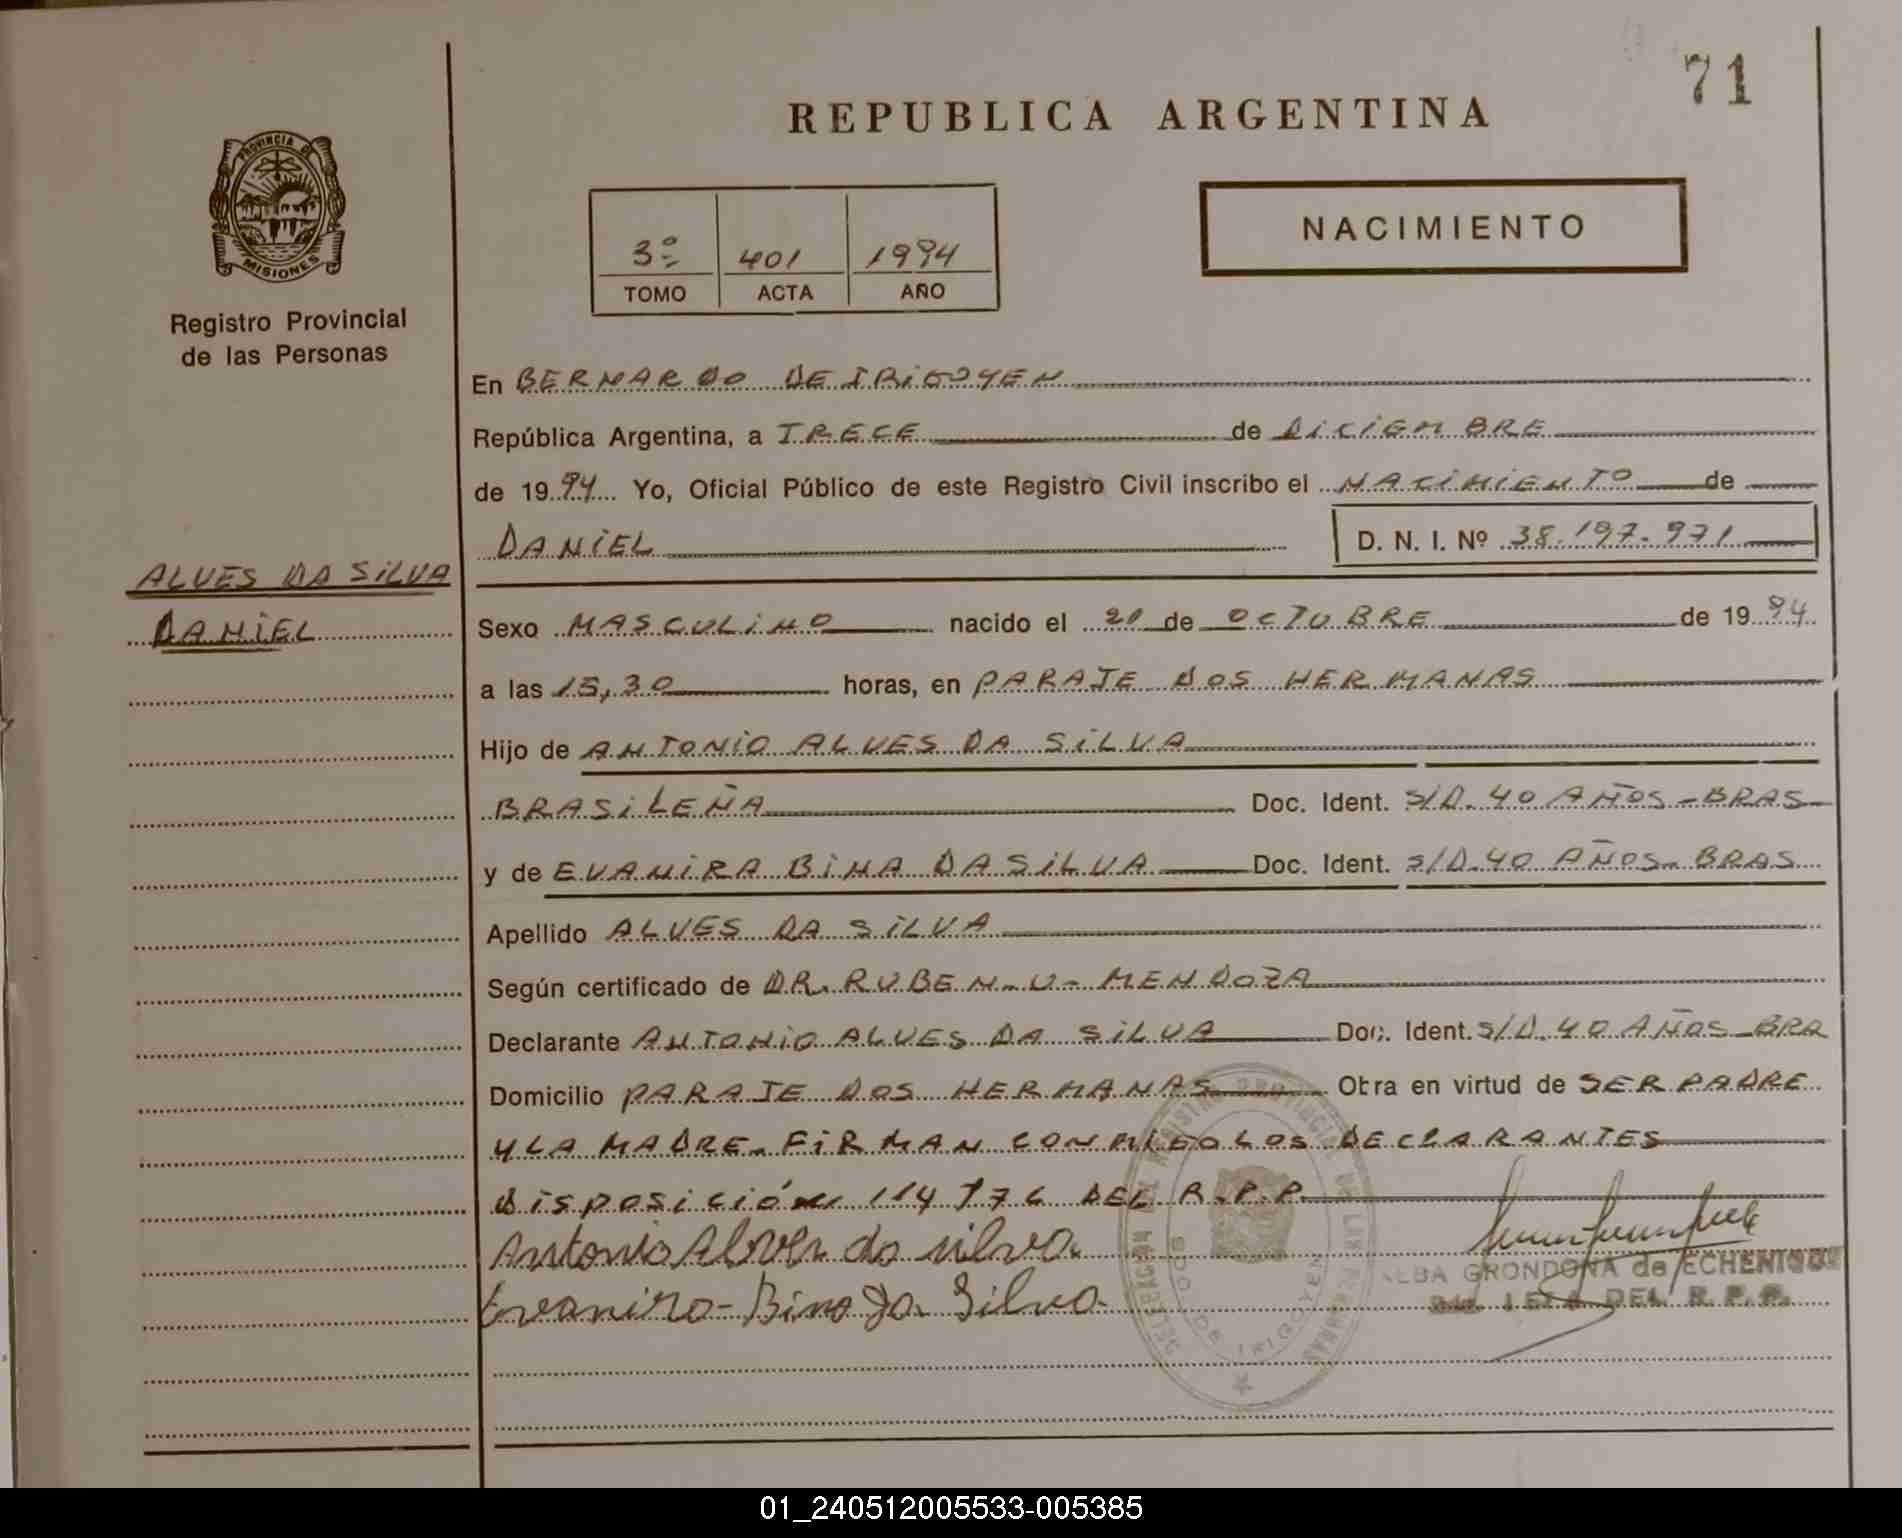 71
REPUBLICA ARGENTINA
PROVINCIA DE
MISIONES
Registro Provincial
de las Personas
NACIMIENTO
3º 401 1994
TOMO ACTA AÑO
En BERNARDO DE IRIGOYEN
República Argentina, a TRECE de DICIEMBRE
de 1994 Yo, Oficial Público de este Registro Civil inscribo el NACIMIENTO de
DANIEL D. N. I. Nº 38.197.971
ALVES DA SILVA
DANIEL
Sexo MASCULINO nacido el 20 de OCTUBRE de 1994
a las 15,30 horas, en PARAJE DOS HERMANAS
Hijo de ANTONIO ALVES DA SILVA
BRASILEÑA Doc. Ident. S/D. 40 AÑOS - BRAS
y de EVANIRA BINA DA SILVA Doc. Ident. S/D. 40 AÑOS - BRAS
Apellido ALVES DA SILVA
Según certificado de DR. RUBEN - U - MENDOZA
Declarante ANTONIO ALVES DA SILVA Doc. Ident. S/D. 40 AÑOS - BRA
Domicilio PARAJE DOS HERMANAS Obra en virtud de SER PADRE
Y LA MADRE - FIRMAN CONMIGO LOS DECLARANTES
DISPOSICIÓN 114/76 DEL R.P.P.
Antonio Alves da silva
Evanira - Bina Da Silva
ALBA GRONDONA de ECHENIQUE
DEL R. P. P.
DE IRIGOYEN
01_240512005533-005385